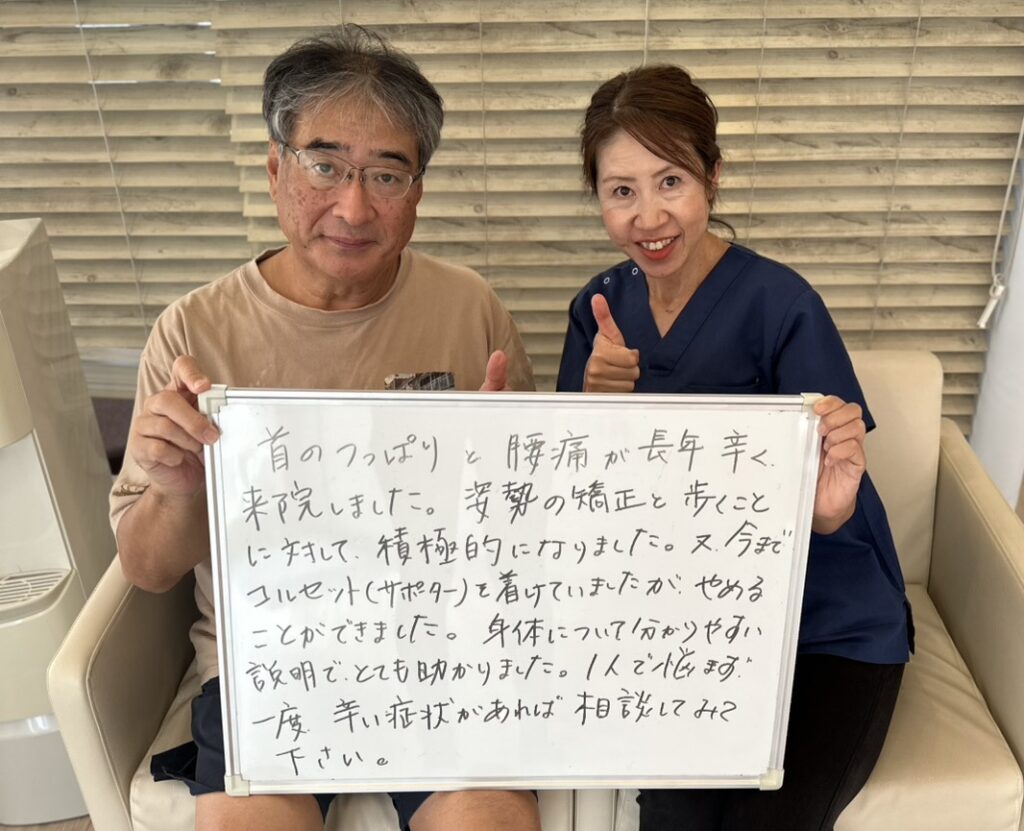 首のつっぱりと腰痛が長年辛く、
来院しました。姿勢の矯正と歩くこと
に対して、積極的になりました。又、今まで
コルセット(サポーター)を着けていましたが、やめる
ことができました。身体について分かりやすい
説明で、とても助かりました。1人で悩まず、
一度、辛い症状があれば相談してみて
下さい。